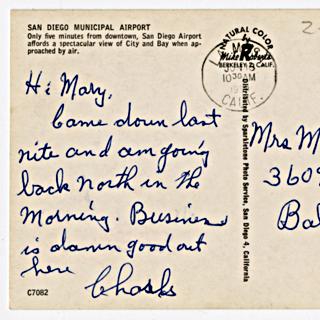 SAN DIEGO MUNICIPAL AIRPORT
Only five minutes from downtown, San Diego Airport
affords a spectacular view of City and Bay when ap-
proached by air.
Hi Mary,
Came down last
nite and am going
back North in the
Morning. Business
is damn good out
here
C7082
NATURAL COLOR
by
Mike Roberts
BERKELEY 2, CALIF.
10 30 AM
CALIF.
Distributed by Sparkletone Photo Service, San Diego 4, California
Mrs M
3609
Bal